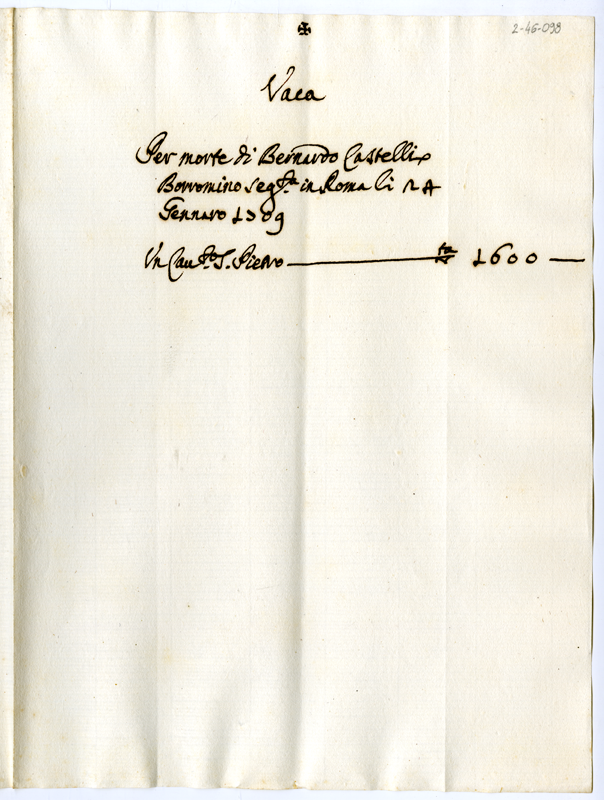 2-46-098
✠
Vaca
Per morte di Bernardo Castelli
Borromino seg.ta in Roma li 24
Gennaro 1709
Un Cau.to S. Pietro — 1600 —